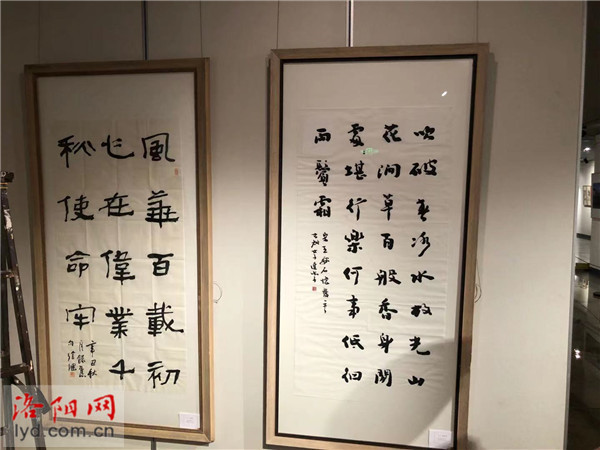 吹破春冰水放光山
花澗草百般香身閒
處堪行樂何事低徊
兩鬢霜
風華百載初
心在偉業千
秋使命牢
辛丑秋
洛阳网
lyd.com.cn